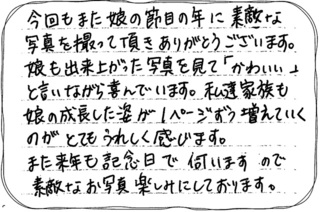 今回もまた娘の節目の年に素敵な
写真を撮って頂きありがとうございます。
娘も出来上がった写真を見て「かわいい」
と言いながら喜んでいます。私達家族も
娘の成長した姿が1ページずつ増えていく
のがとてもうれしく感じます。
また来年も記念日で伺いますので
素敵なお写真楽しみにしております。